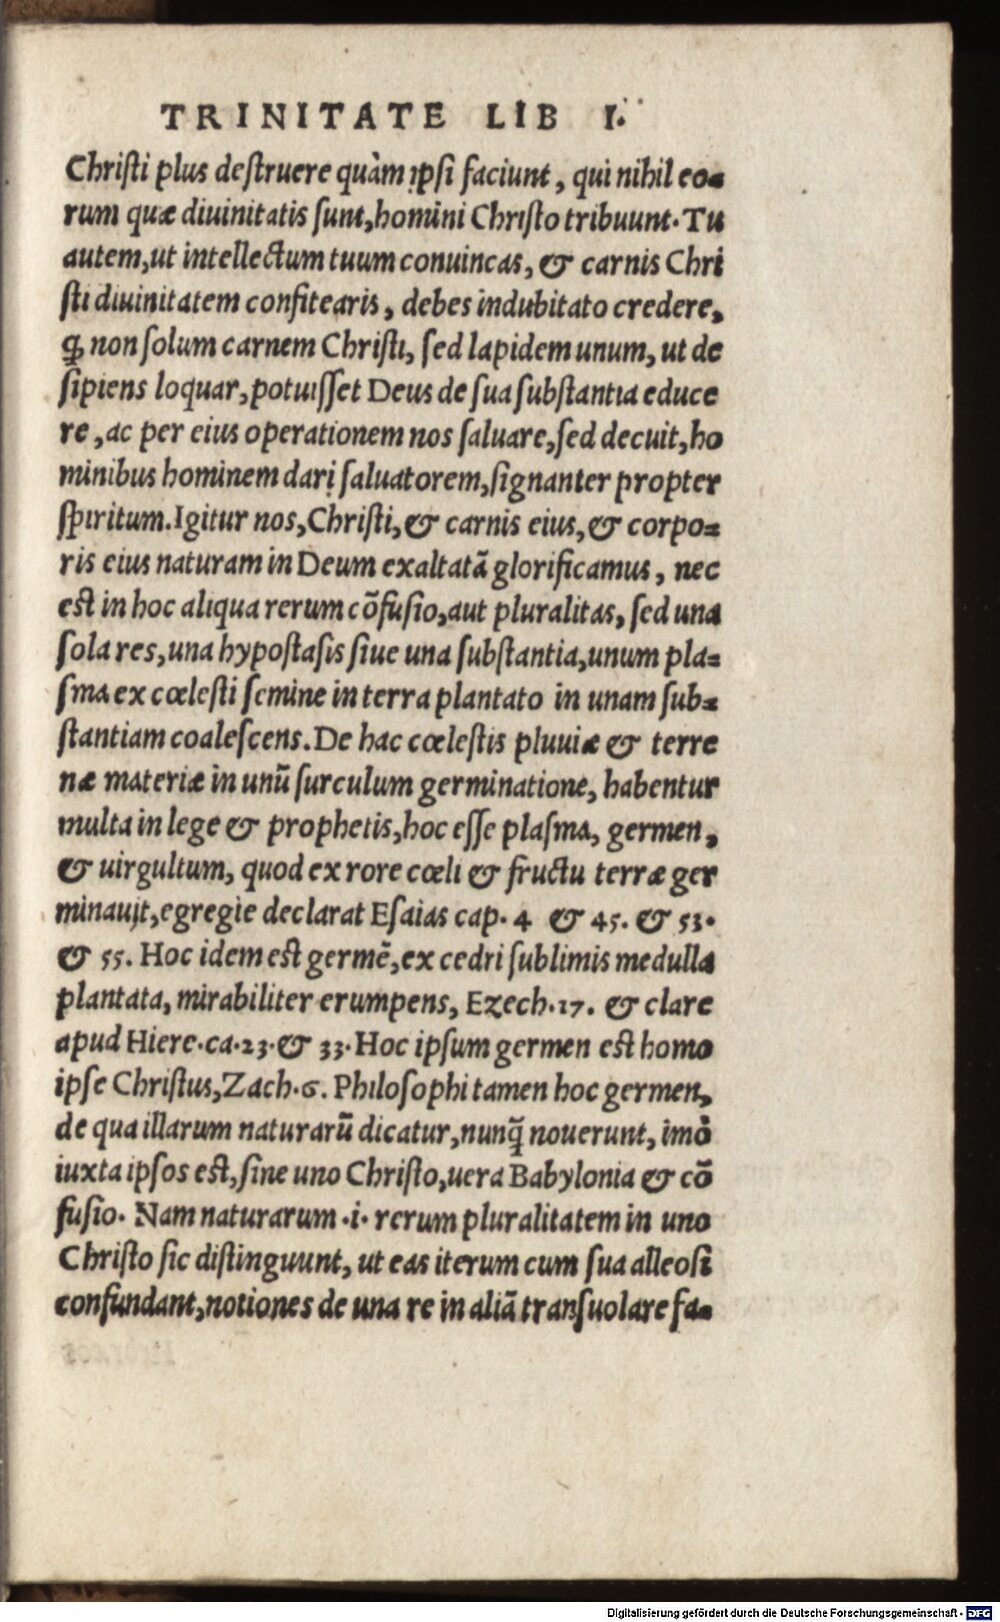 TRINITATE LIB I.
Chriſti plus deſtruere quàm ipſi faciunt, qui nihil eo-
rum quæ diuinitatis ſunt, homini Chriſto tribuunt. Tu
autem, ut intellectum tuum conuincas, & carnis Chri
ſti diuinitatem confitearis, debes indubitato credere,
ꝙ non ſolum carnem Chriſti, ſed lapidem unum, ut de
ſipiens loquar, potuiſſet Deus de ſua ſubſtantia educe
re, ac per eius operationem nos ſaluare, ſed decuit, ho
minibus hominem dari ſaluatorem, ſignanter propter
ſpiritum. Igitur nos, Chriſti, & carnis eius, & corpo-
ris eius naturam in Deum exaltatã glorificamus, nec
est in hoc aliqua rerum cõfuſio, aut pluralitas, ſed una
ſola res, una hypoſtaſis ſiue una ſubſtantia, unum pla-
ſma ex cœleſti ſemine in terra plantato in unam ſub-
ſtantiam coaleſcens. De hac cœleſtis pluuiæ & terre
næ materiæ in unũ ſurculum germinatione, habentur
multa in lege & prophetis, hoc eſſe plaſma, germen,
& uirgultum, quod ex rore cœli & fructu terræ ger
minauit, egregie declarat Eſaias cap. 4 & 45. & 53.
& 55. Hoc idem est germẽ, ex cedri ſublimis medulla
plantata, mirabiliter erumpens, Ezech. 17. & clare
apud Hiere. ca. 23. & 33. Hoc ipſum germen est homo
ipſe Chriſtus, Zach. 6. Philoſophi tamen hoc germen,
de qua illarum naturarũ dicatur, nunq̃ nouerunt, imò
iuxta ipſos est, ſine uno Chriſto, uera Babylonia & cõ
fuſio. Nam naturarum .i. rerum pluralitatem in uno
Chriſto ſic diſtinguunt, ut eas iterum cum ſua alleoſi
confundant, notiones de una re in aliã tranſuolare fa-
Digitalisierung gefördert durch die Deutsche Forschungsgemeinschaft - DFG